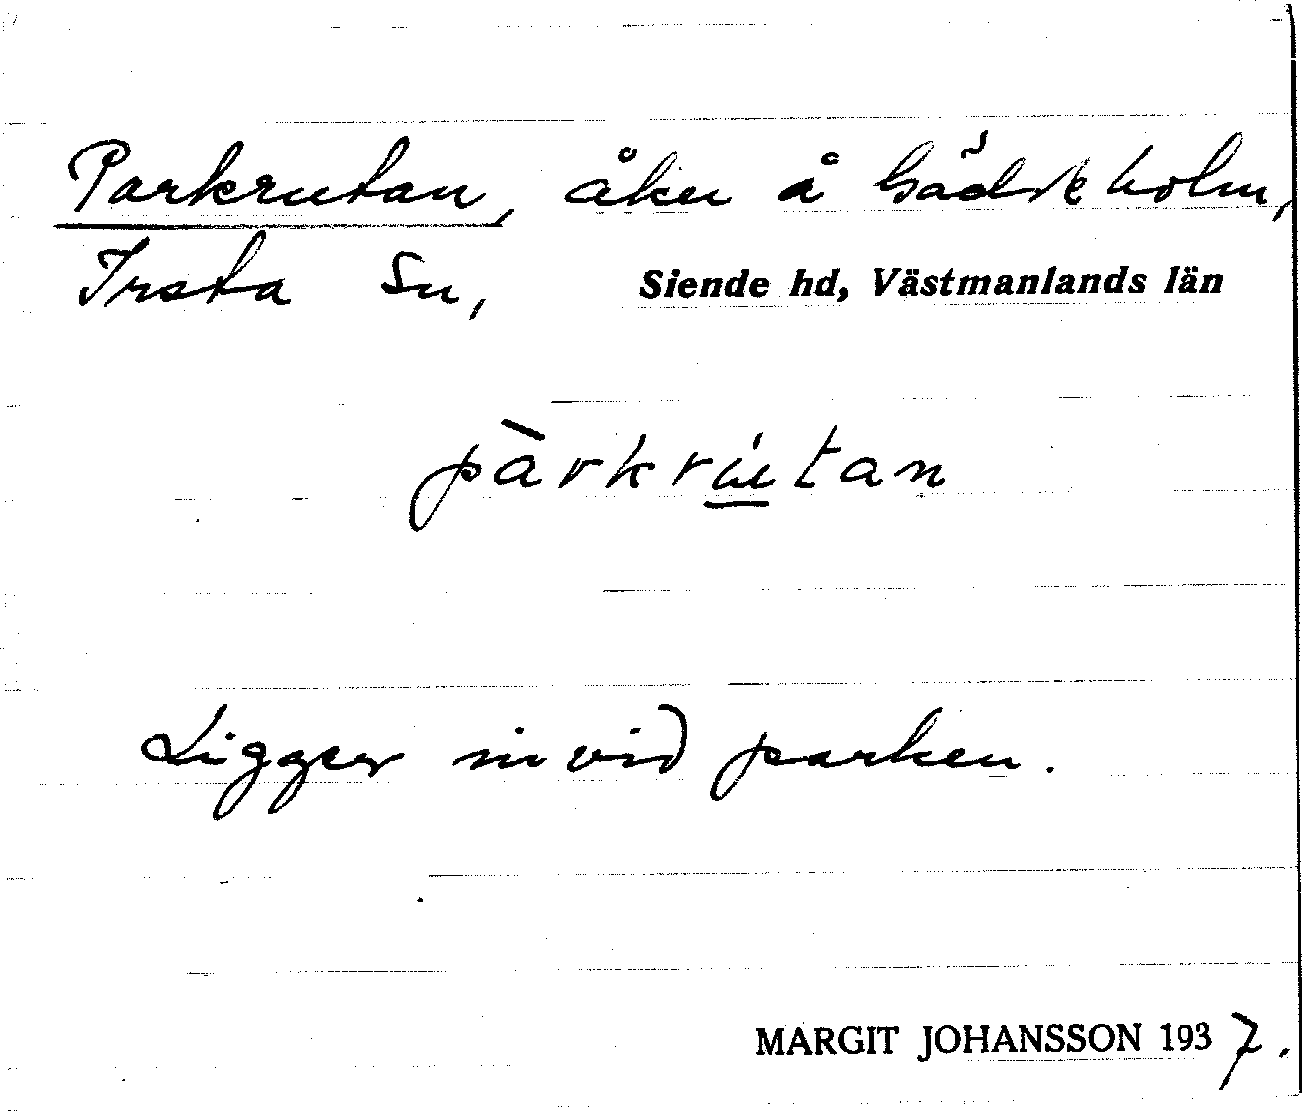 Parkrutan, åker å Gäddeholm,
Irsta sn, Siende hd, Västmanlands län
pàrkrútan
Ligger invid parken.
MARGIT JOHANSSON 1937.